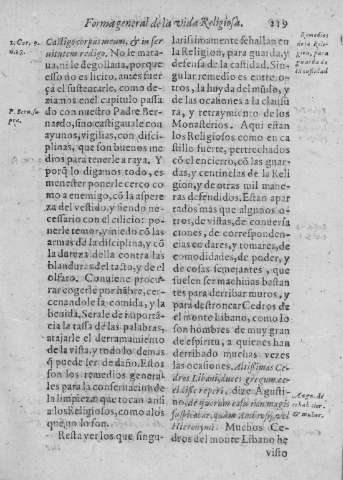 Forma general de la vida Religiosa. 219
1. Cor. 9.
Castigo corpus meum, & in ser
uitutem redigo. No le mata-
ua, ni le degollaua, porque
esso no es licito, antes fuer-
ça el sustentarle, como de-
ziamos en el capitulo passa
P. Bern. su
pra.
do con nuestro Padre Ber-
nardo, sino castigauale con
ayunos, vigilias, con disci-
plinas, que son buenos me
dios para tenerle a raya. Y
porq̃ lo digamos todo, es
menester ponerle cerco co
mo a enemigo, cõ la aspere
za del vestido y siendo ne-
cessario con el cilicio: po-
nerle temor, y miedo cõ las
armas de la disciplina, y cõ
la dureza della contra las
blanduras del tacto, y de el
olfato. Conuiene procu-
rar cogerle por hãbre, cer-
cenandole la comida, y la
beuida. Serale de importã-
cia la tassa de las palabras,
atajarle el derramamiento
de la vista, y todo lo demas
q̃ puede ser de daño. Estos
son los remedios general
les para la conseruacion de
la limpieza que tocan assi
a los Religiosos, como a los
que no lo son.
Resta ver los que singu-
larissimamente se hallan en
Remedios
de la Reli-
gion, para
guarda de
la castidad
la Religion, para guarda, y
defensa de la castidad. Sin-
gular remedio es entre o-
tros, la huyda del mũdo, y
de las ocasiones a la clausu
ra, y retraymiento de los
Monasterios. Aqui estan
los Religiosos como en ca
stillo fuerte, pertrechados
cõ el encierro, cõ las guar-
das, y centinelas de la Reli
gion, y de otras mil mane
ras defendidos. Estan apar
tados mas que algunos o-
tros, de vistas, de conuersa
ciones, de corresponden-
cias en dares, y tomares, de
comodidades, de poder, y
de cosas semejantes, que
suelen ser machinas bastan
tes para derribar muros, y
para destroncar Cedros de
el monte Libano, como lo
son hombres de muy gran
de espiritu, a quienes han
derribado muchas vezes
las ocasiones. Altissimas Ce-
dros Libani, duces gregum, ce-
cidisse reperi, dize Agusti-
Augu. de
no, de quorum casu non magis
suspicabar, quàm Ambrosij, vel
Hieronymi. Muchos Ce-
dros del monte Libano he
visto